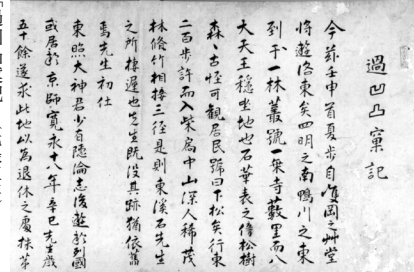 過凹凸窠記
今茲壬申首夏歩自雙岡之艸堂
將遊洛東矣四明之南鴨川之東
到于一林叢號一乗寺藪里而八
大天王穏坐地也石華表之傍松樹
森々古怪可観居民號曰下松矣行東
二百歩許而入柴扃中山深人稀茂
林脩竹相接三徑是則東溪石先生
之所棲遅也先生既没其跡猶依舊
焉先生初仕
東照大神君少有隱倫志後遊於列國
或居於京師寛永十八年辛巳先生歳
五十餘遂求此地以為退休之處扶茅